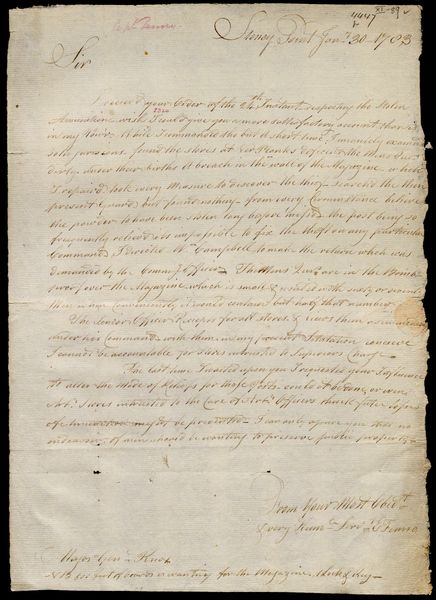 Capt. Fenno
4447
Stoney Point Jany. 30 - 1783
Sir
I receiv'd your Order of the 24th Instant respecting the Stolen
Ammunition wish I could give you a more satisfactory account than is
in my Power. Have Commanded this but a short time, I
found the
under their births & breach in the wall of the Magazine a hole
I repair'd, took every Measure to discover the thief - search'd the
present Guard but found nothing - from every Circumstance believe
the powder to have been stolen long before the post being so
frequently reliev'd its impossible to fix the theft on any particular
Command. I directed Mr. Campbell to make the return which was
demanded by the Commg. Officer - The Mens are in the Bomb
proof over the Magazine which is small &
than conveniently would contain but half that number
The Senior Officer Receipts for all Stores & views them as immediately
under his Command with them, in my present Situation conceive
I cannot be accountable for Stores intrusted to Superiors Charge.
The last time I waited upon you I requested your
to alter the mode of Receipts for those Posts could it be done, or were
Arty. Stores intrusted to the Care of Arty. Officers think future losses
of might be prevented - I can only assure you that no
endeavor of mine should be wanting to preserve public property -
From Your Most Obedt.
& very Humle. Servt. E Fenno
Major Genl. Knox
NB wanting for the Magazine Lock & Key -